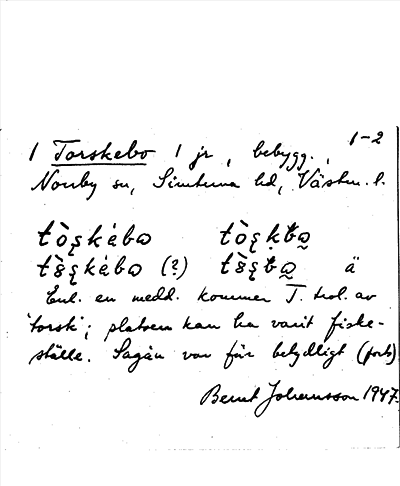 1-2
1 Torskebo 1 jr, bebygg.,
Norrby sn, Simtuna hd, Västm. l.
tò̀ȿkébɷ tò̀ȿk̆bɷ̰
ts̀ȿkébɷ (?) ts̀ȿbɷ̰ ä
Enl. en medd. kommer T. trol. av
'torsk'; platsen kan ha varit fiske-
ställe. Sagån var för betydligt (forts)
Bernt Johansson 1947.